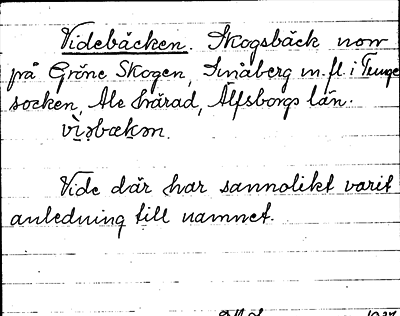 Videbäcken. Skogsbäck norr
på Gröne Skogen, Småberg m.fl. i Tunge
socken, Ale härad, Älfsborgs län.

Vide där har sannolikt varit
anledning till namnet.